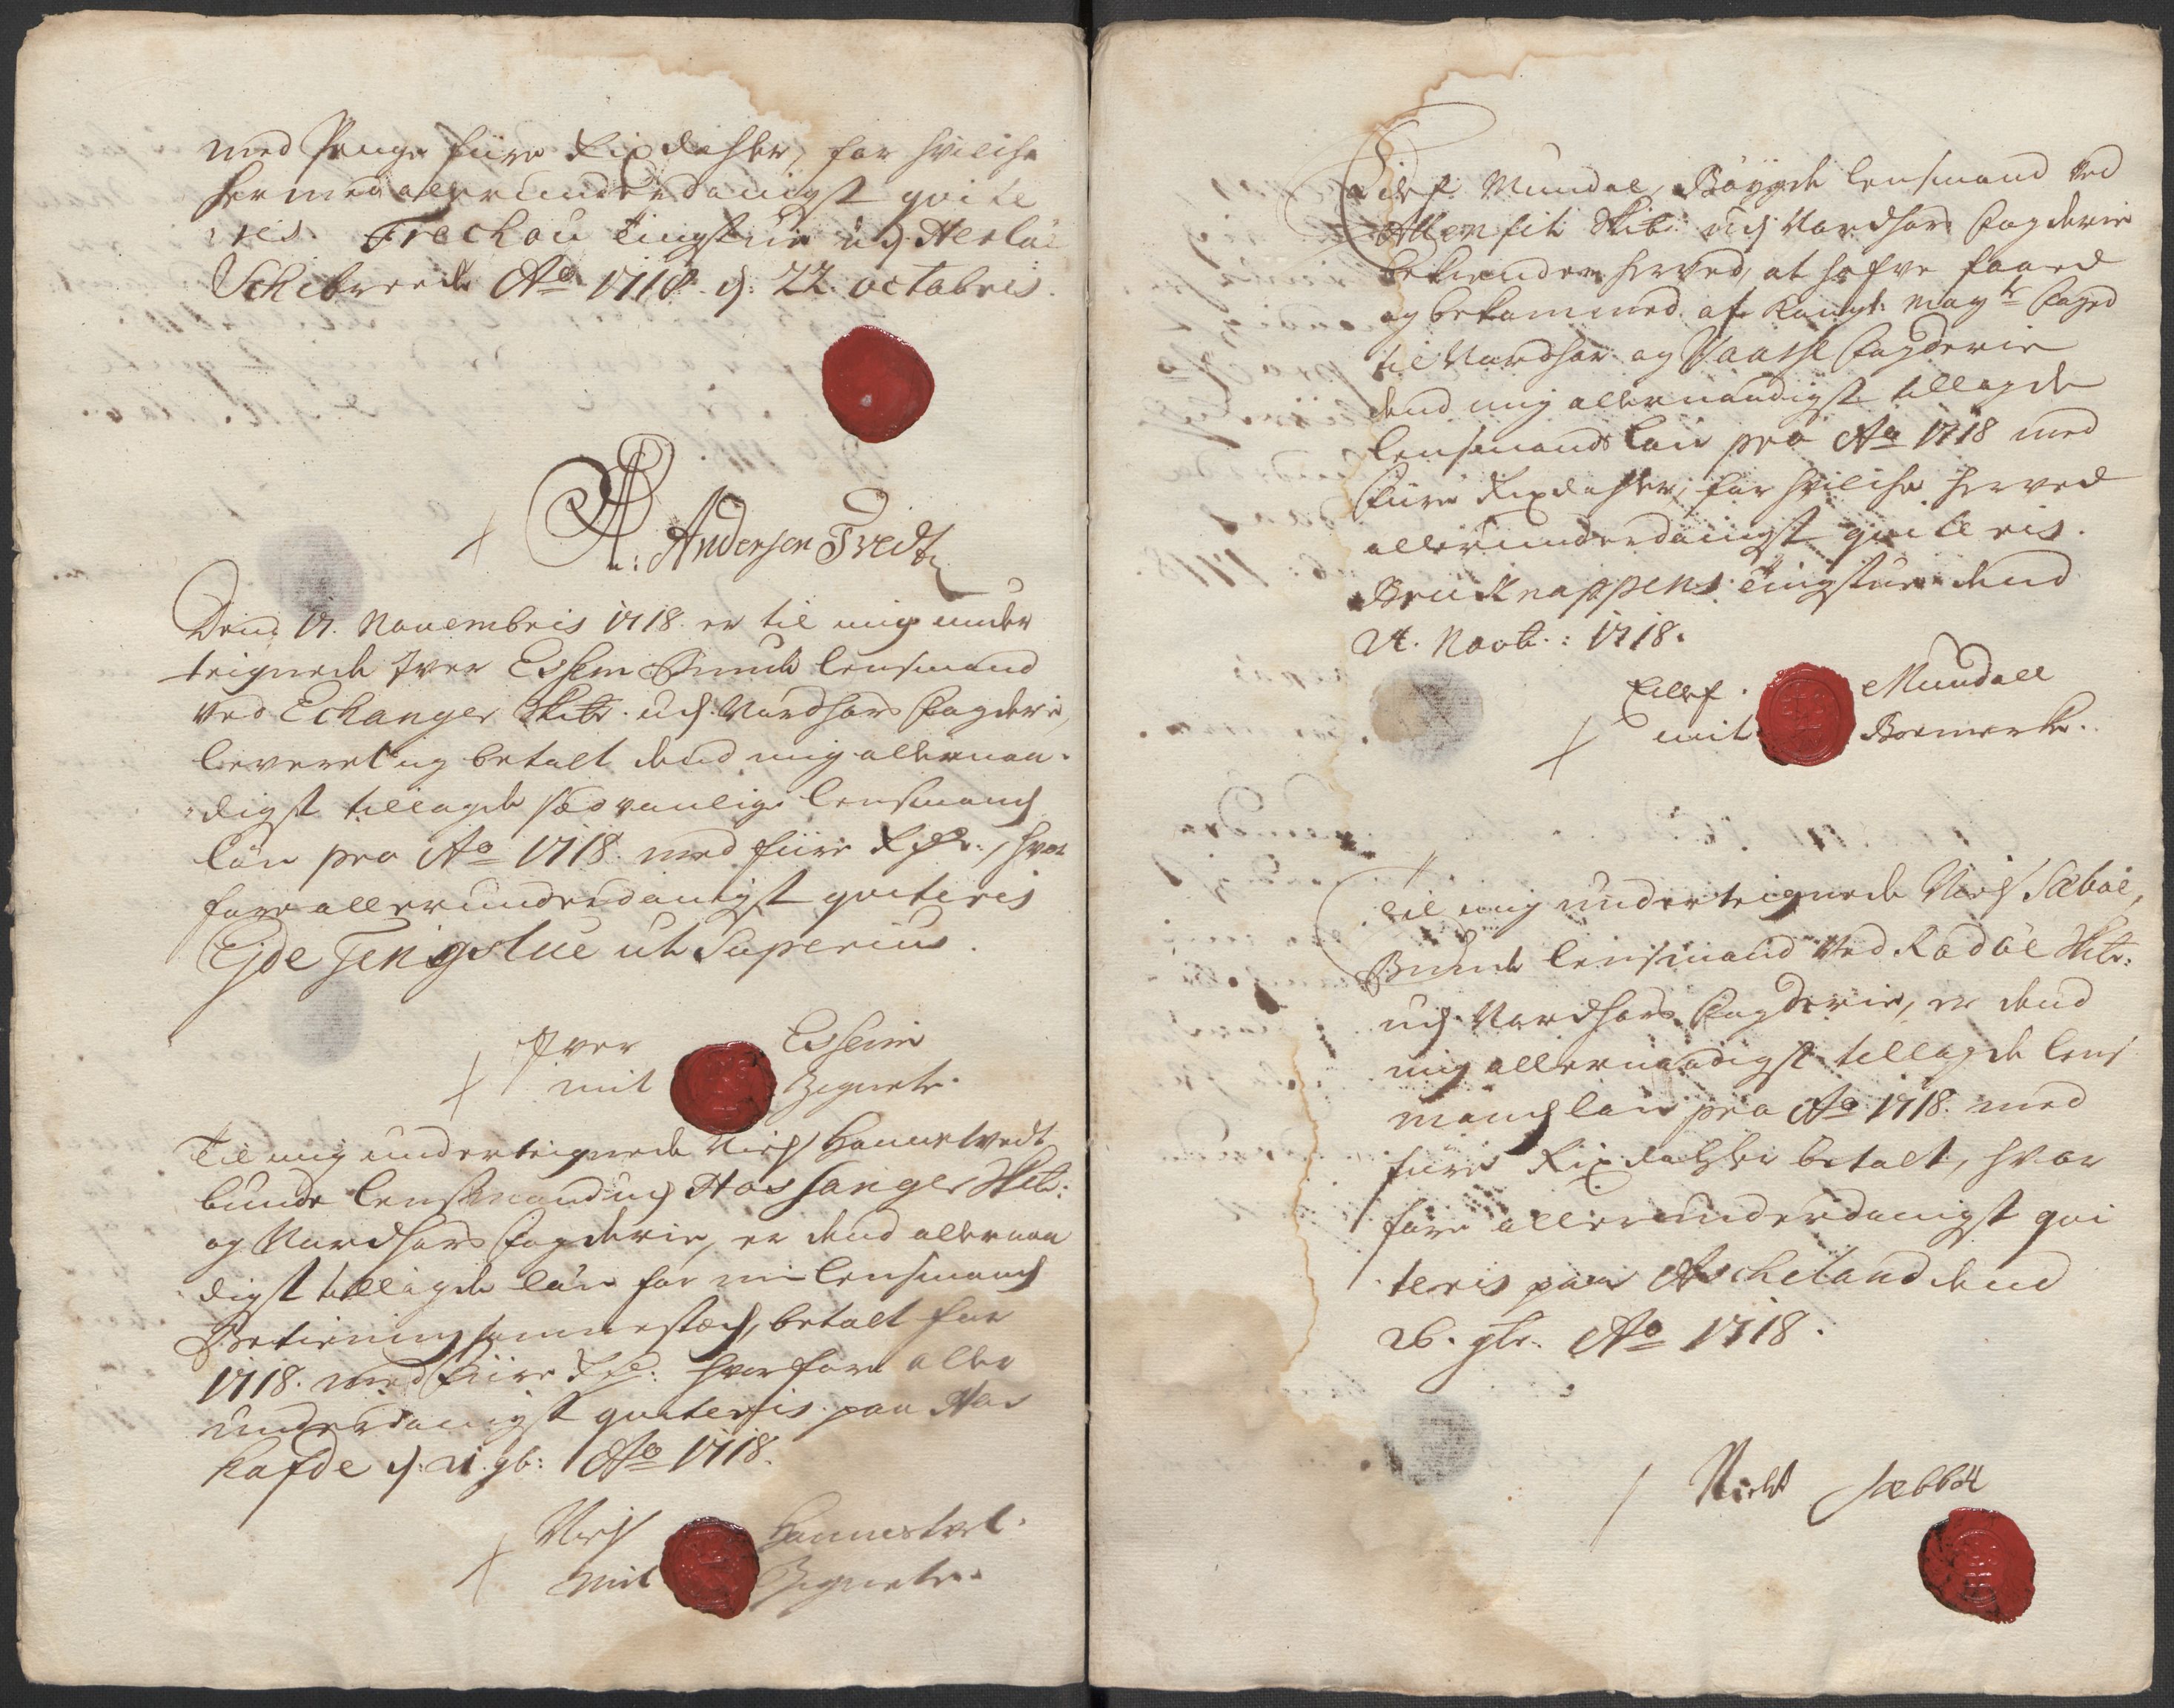 med Penge fiire Rixdahler, for hvilche
hermed allerunderdanigst qvite
ris. Frechou tingstue udj Herlöe
Schibrede Ao 1718. d: 22 octobris.
A: Andersen Tvedt
Dend 17. Novembris 1718. er til mig under
teignede Iver Eshem Bunde lensmand
ved Echanger Skibr. udj Nordhors fogderie,
leveret og betalt dend mig allernaa-
digst tillagde sædvanlige lensmands
lön pro Ao 1718. med fiire Rdr., hvor
fore allerunderdanigst qviteris
Ejde Tingstue ut Superius.
Iver Esheim
mit Zignete.
Til mig underteignede Niels Hannestvedt
bunde lensmand udj Hossanger Skibr:
og Nordhors fogderie, er dend allernaa
digst tillagde lön for min lensmands
Betiening sammestæds, betalt for
1718. med fiire Rdr: hvorfore aller
underdanigst qviteris paa Hos
hafde d: 21. 9b: Ao 1718.
Niels Hannestvet.
mit Zignete.
Eilef Mundal, Böygde lensmand ved
Allenfit Skibr: udj Nordhors fogderie
bekiender herved, at hafve faaed
og bekommed af Kongl: Mayts foged
til Nordhor og Vaasse fogderie
dend mig allernaadigst tillagde
lensmands lön pro Ao 1718 med
fiire Rixdahler, for hvilche herved
allerunderdanigst qviteris.
Bruknappens tingstue dend
24. Novb: 1718.
Eilef Mundall
mit Boemerke.
Til mig underteignede Niels Sæböe,
Bunde lensmand ved Radöe Skibr:
udj Nordhors fogderie, er dend
mig allernaadigst tillagde lens
mands lön pro Ao 1718. med
fiire Rixdahler betalt, hvor
fore allerunderdanigst qvi
teris paa Ascheland dend
26. 9br. Ao 1718.
Niels Sæbböe